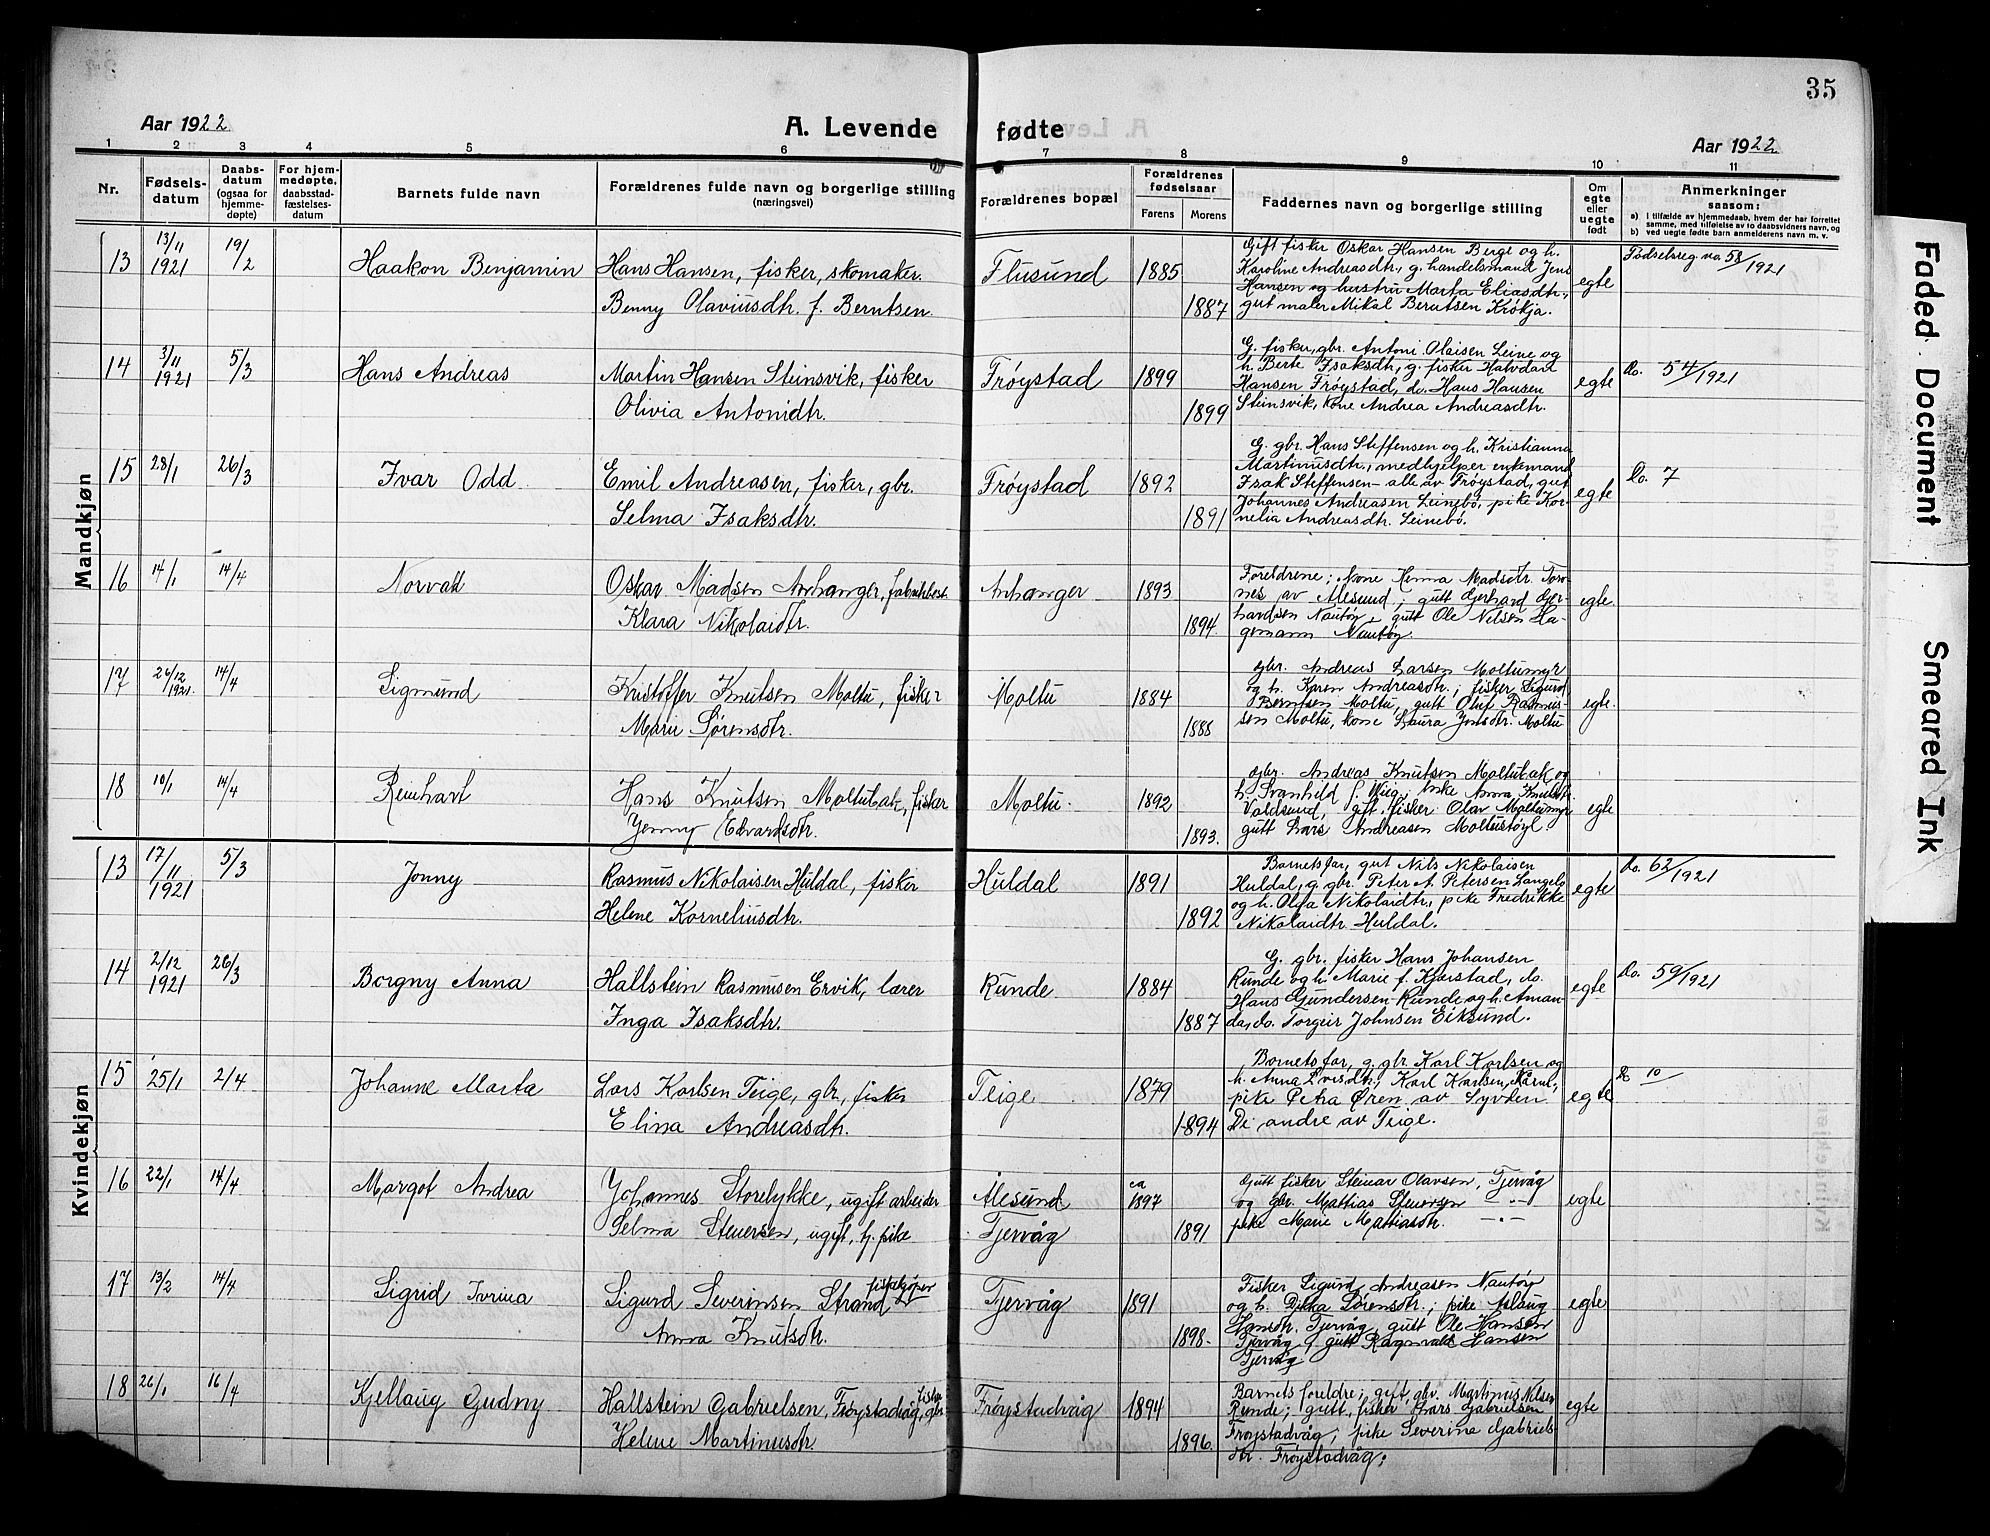 35
Aar 1922 A. Levende fødte Aar 1922
1 2 3 4 5 6 7 8 9 10 11
Nr.
Fødsels-
datum
Daabs-
datum
(ogsaa for
hjemme-
døpte)
For hjem-
medøpte,
daabsstad-
fæstelses-
datum
Barnets fulde navn
Forældrenes fulde navn og borgerlige stilling
(næringsvei)
Forældrenes bopæl
Forældrenes
fødselsaar
Farens Morens
Faddernes navn og borgerlige stilling
Om
egte
eller
uegte
født
Anmerkninger
saasom:
a) i tilfælde av hjemmedaab, hvem der har forrettet
samme, med tilføielse av to daabsvidners navn, og
b) ved uegte fødte barn anmelderens navn m. v.
Mandkjøn
13 13/11 1921 19/2 Haakon Benjamin
Hans Hansen, fisker, skomaker.
Benny Olaviusdtr. f. Berntsen.
Flusund 1885 1887
Gift fisker Oskar Hansen Berge og h.
Karoline Andreasdtr., g. handelsmand Jens
Hansen og hustru Marta Eliasdtr.,
gut maler Mikal Berntsen Krøkja.
egte Fødselsreg no. 58/1921
14 3/11 1921 5/3 Hans Andreas
Martin Hansen Steinsvik, fisker
Olivia Antonidtr.
Frøystad 1899 1899
G. fisker, gbr. Antoni Olaisen Leine og
h. Berte Isaksdtr., g. fisker Halvdan
Hansen Frøystad, do. Hans Hansen
Steinsvik, kone Andrea Andreasdtr.
egte Do. 54/1921
15 28/1 26/3 Ivar Odd.
Emil Andreasen, fisker, gbr.
Selma Isaksdtr.
Frøystad 1892 1891
G. gbr. Hans Steffensen og h. Kristianna
Martinusdtr., medhjelper enkemand
Isak Steffensen - alle av Frøystad, gut
Johannes Andreasen Leinebø, pike Kor-
nelia Andreasdtr. Leinebø.
egte Do. 7
16 14/1 14/4 Norvald
Oskar Madsen Arhanger,
Klara Nikolaidtr.
Arhanger 1893 1894.
Foreldrene; kone Hanna Madsdtr.
av Ålesund; gutt Gerhard Ger-
hardsen Nautøy, gutt Ole Nilsen Ha-
gemann Nautøy.
egte.
17 26/12 1921. 14/4 Sigmund
Kristoffer Knutsen Moltu, fisker
Marie Sørensdtr.
Moltu 1884 1888
gbr. Andreas Larsen Moltumyr
og h. Karen Andreasdtr.; fisker Sigurd
Berntsen Moltu, gutt Oluf Rasmus-
sen Moltu, kone Laura Jensdtr. Moltu
egte.
18 10/1 14/4 Reinhart
Hans Knutsen Moltubak, fisker
Jenny Edvardsdtr.
Moltu. 1892 1893.
gbr. Andreas Knutsen Moltubak og
h. Svanhild f. pike Anna Knutsdtr.
Valdsund, gift fisker Olav Moltumyr
gutt Lars Andreasen Moltustøyl.
egte
Kvindekjøn
13 17/11 1921 5/3 Jonny
Rasmus Nikolaisen Huldal, fisker
Helene Korneliusdtr.
Huldal 1891 1892
Barnets far, gut Nils Nikolaisen
Huldal, g. gbr. Peter A. Petersen Langelo
og h. Olga Nikolaidtr., pike Fredrikke
Nikolaidtr. Huldal.
egte Do. 62/1921
14 2/12 1921 26/3 Borgny Anna
Hallstein Rasmusen Ervik, lærer
Inga Isaksdtr.
Runde 1884 1887
G. gbr. fisker Hans Johansen
Runde og h. Marie f. Kjerstad, do.
Hans Gundersen Runde og h. Aman-
da, do. Torgeir Johnsen Eiksund.
egte Do. 59/1921
15 25/1 2/4 Johanne Marta
Lars Karlsen Teige, gbr., fisker
Elina Andreasdtr.
Teige 1879 1894
Barnets far, g. gbr. Karl Karlsen og
h. Anna Lovisdtr., Karl Karlsen,
pike Petra Øren av Syvden.
De andre av Teige.
egte Do 10
16 22/1 14/4 Margot Andrea
Johannes Storelykke, ugift arbeider
Selma Steversen, ugift, tj. pike
Ålesund
Tjervåg
ca 1897 1891
Gutt fisker Steinar Olavsen, Tjervåg
og gbr. Mattias Steversen -"-
pike Marie Mattiasdtr. -"-
egte
17 13/2 14/4 Sigrid Ivrina
Sigurd Severinsen Strand fiskekjøper
Anna Knutsdtr.
Tjervåg 1891 1898.
Fisker Sigurd Andreasen Nautøy
og h. Dikka Sørensdtr.; pike Aslaug
Hansdtr. Tjervåg, gutt Ole Hansen
Tjervåg g. gutt Ragnvald Hansen
Tjervåg
egte
18 26/1 16/4 Kjellaug Gudny.
Hallstein Gabrielsen, Frøystadvåg, fisker, gbr.
Helene Martinusdtr.
Frøystadvåg 1894 1896.
Barnets foreldre; gift gbr. Martinus Nilsen
Runde; gutt, fisker Lars Gabrielsen
Frøystadvåg; pike Severine Gabriels-
dtr. Frøystadvåg;
egte
Faded Document
Smeared Ink